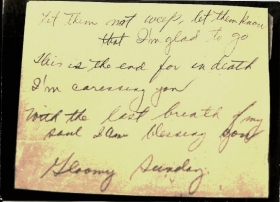 Let them not weep, let them know
that I'm glad to go
This is the end for in death
I'm caressing you
With the last breath of my
soul I am blessing you
Gloomy Sunday.